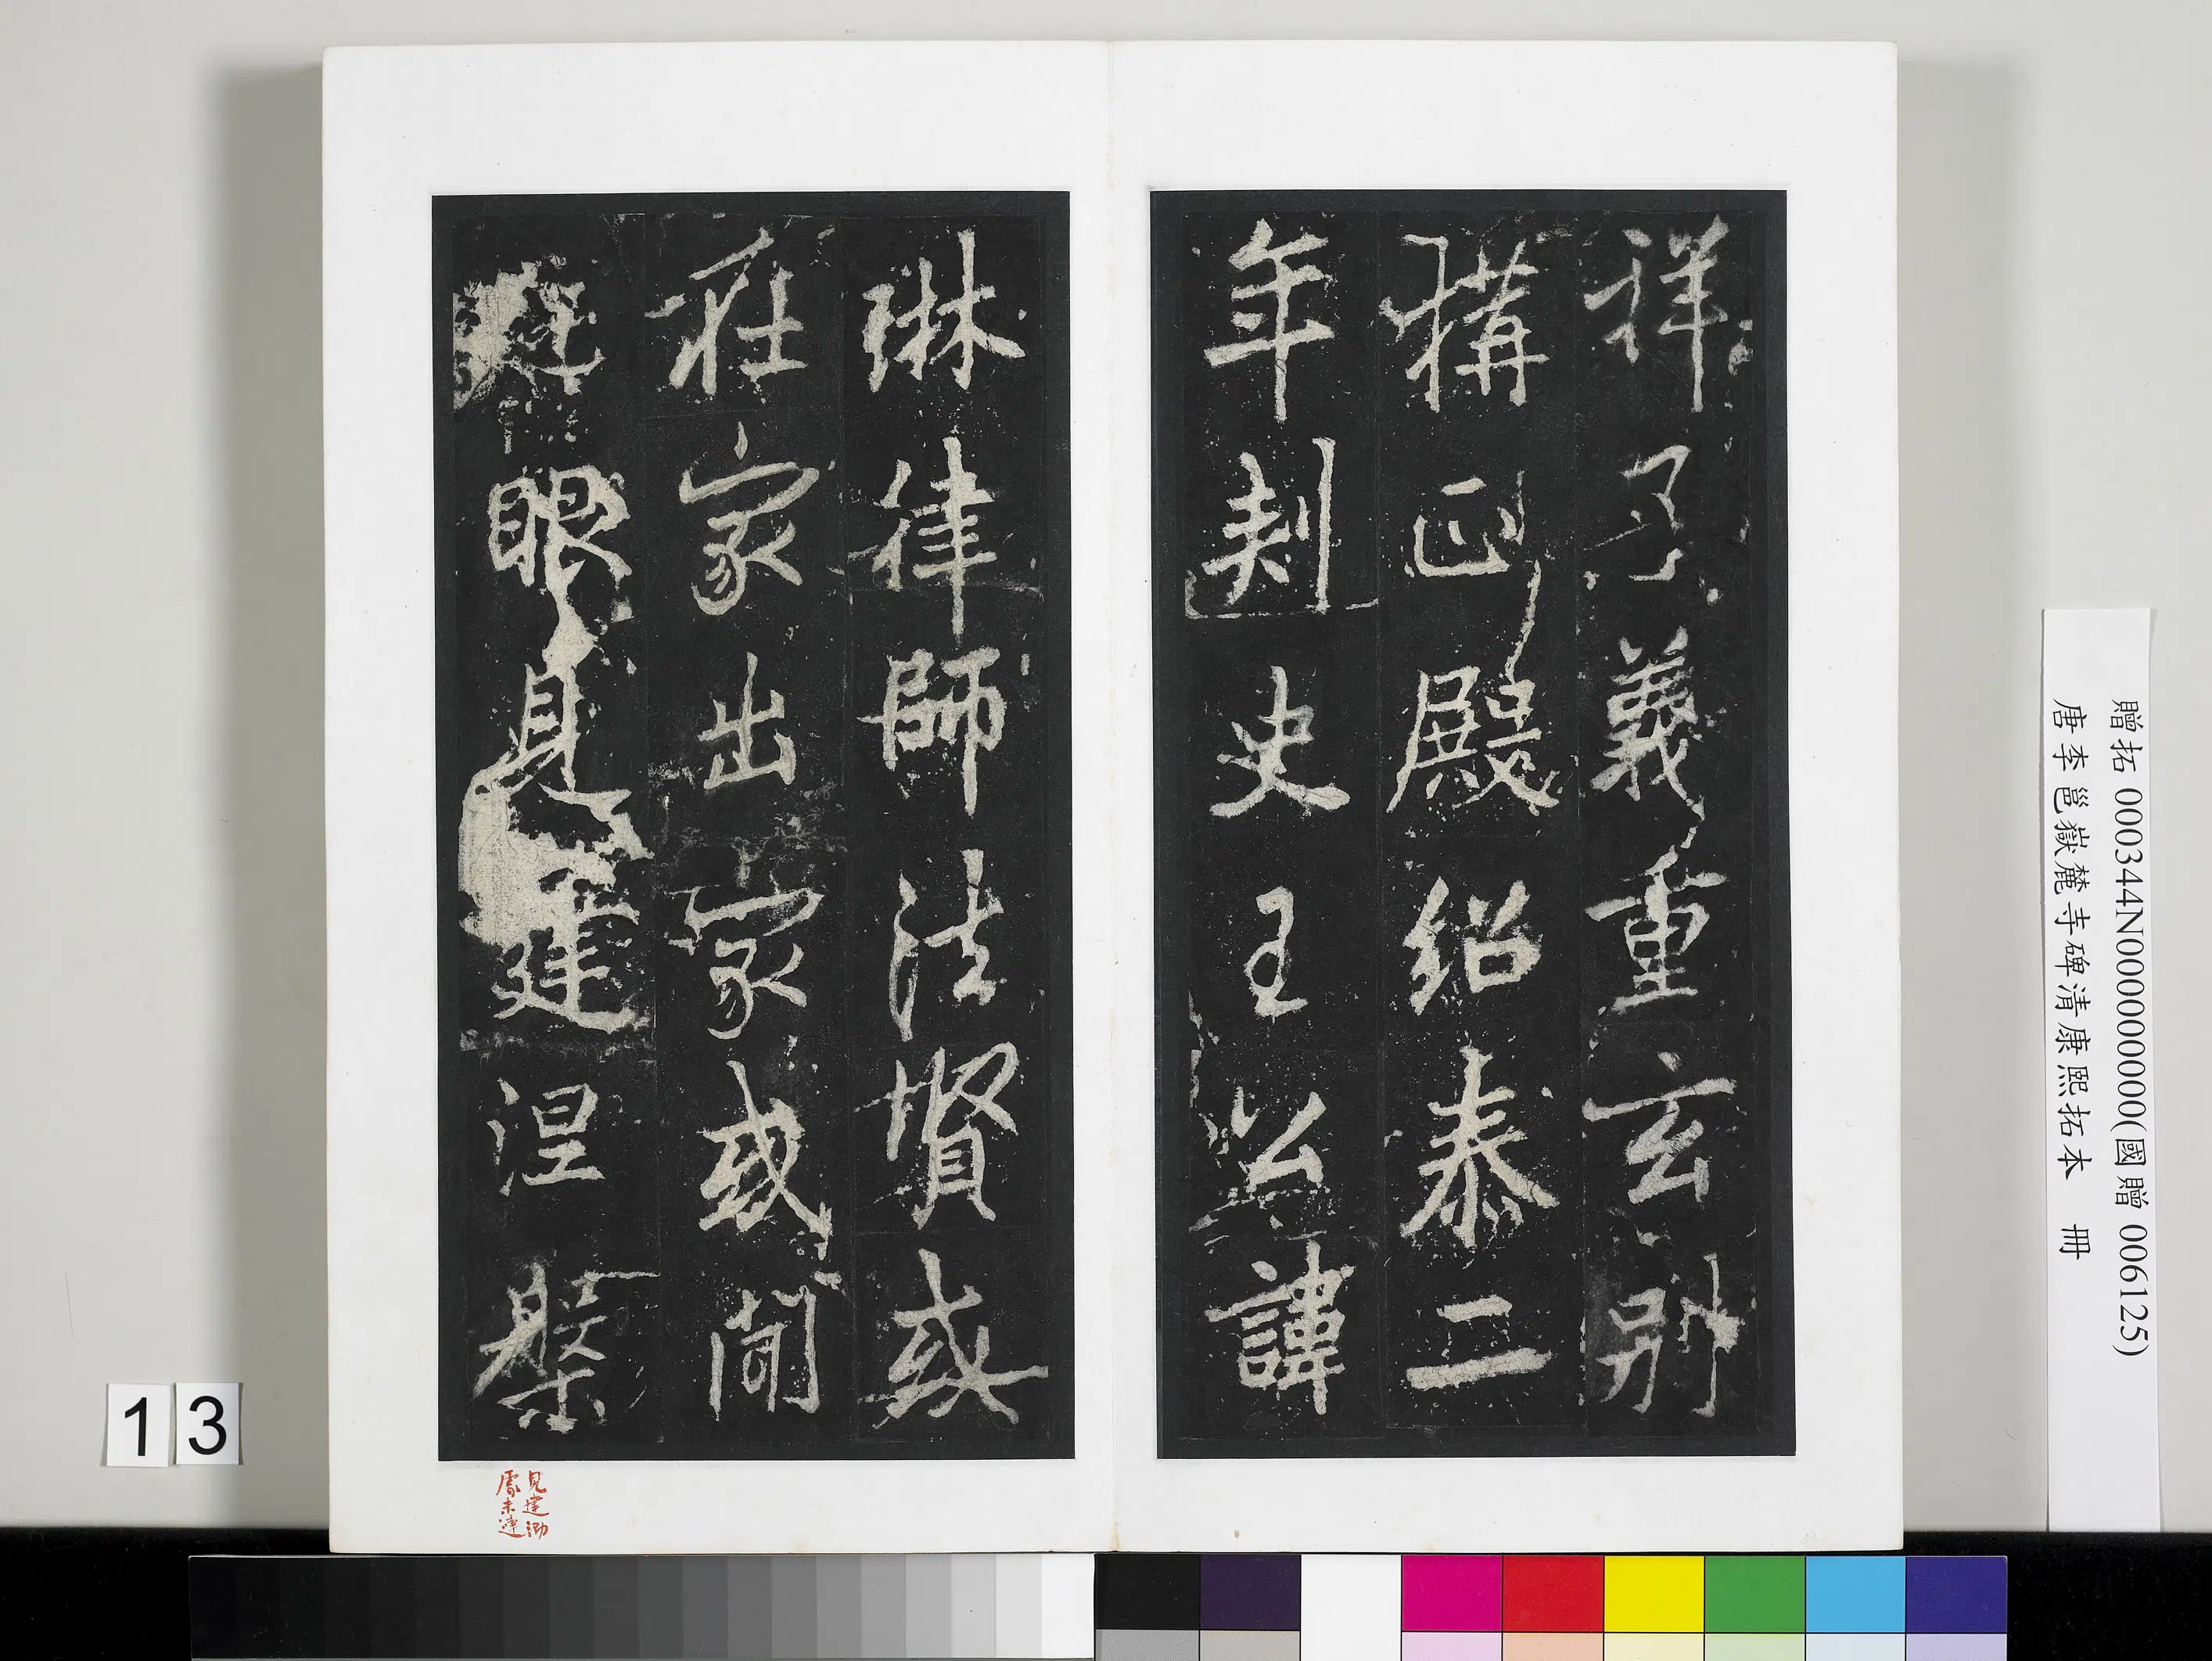 祥了義重玄別
構正殿紹泰二
年刺史王公諱
琳律師法賢或
在家出家或聞
眼見建涅槃
見建泐
處未連
贈拓 000344N000000000(國贈 006125)
唐李邕嶽麓寺碑清康熙拓本 冊
13